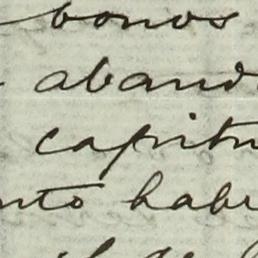 bonos
aband
capitu
nto habe